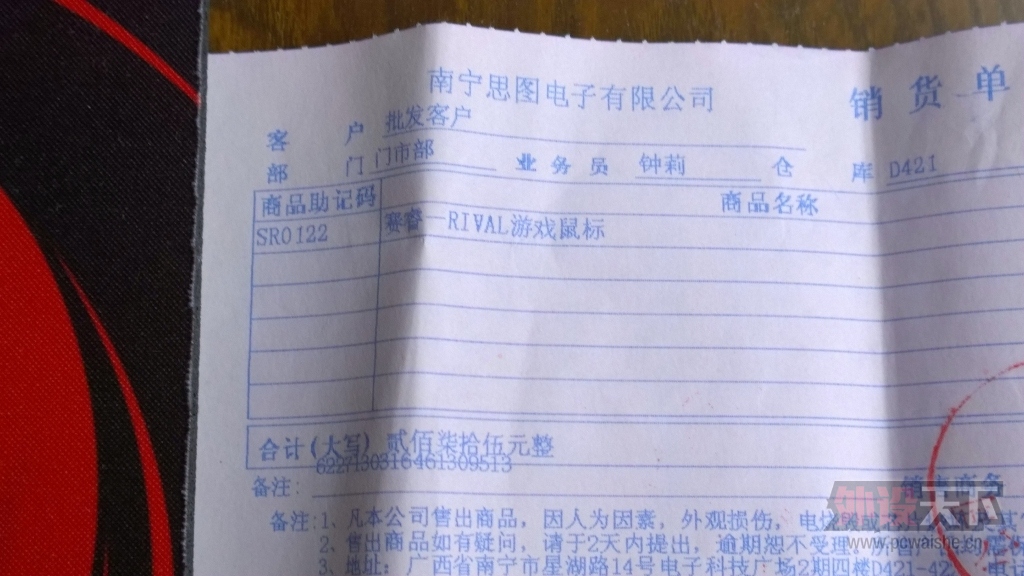 南宁思图电子有限公司 销货单
客户 批发客户
部门 门市部 业务员 钟莉 仓库 D421
商品助记码 商品名称
SR0122 赛睿—RIVAL游戏鼠标
合计(大写) 贰佰柒拾伍元整
备注:
备注:1、凡本公司售出商品，因人为因素，外观损伤，电
2、售出商品如有疑问，请于2天内提出，逾期恕不受理
3、地址：广西省南宁市星湖路14号电子科技广场2期四楼D421-42
外设天下
www.pcwaishe.cn